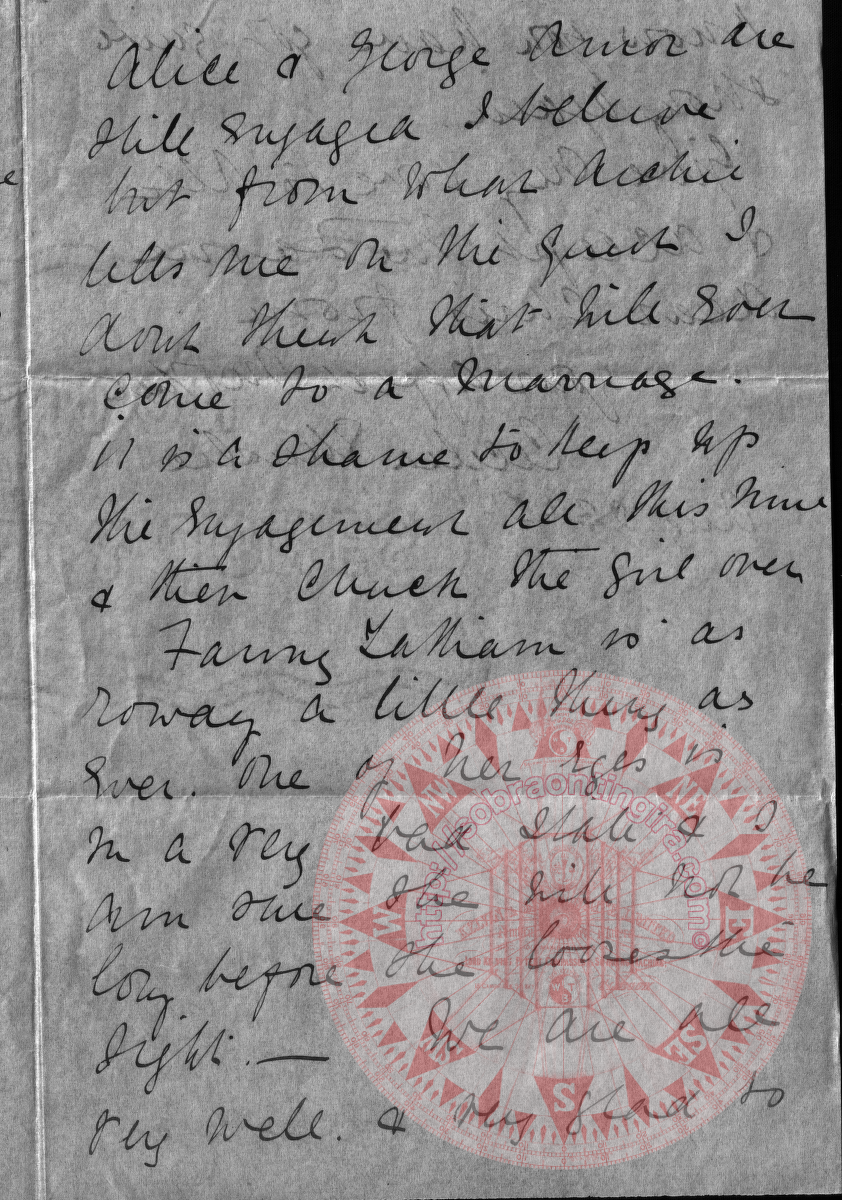 Alice & George Armor are
still engaged I believe
but from what Archie
tells me on the quiet I
dont think that will ever
come to a marriage.
it is a shame to keep up
the engagement all this time
& then chuck the girl over
Fanny Latham is as
rowdy a little thing as
ever. One of her eyes is
in a very bad state & I
am sure she will not be
long before she looses the
sight. — We are all
very well. & very glad to
http://cobraonsingira.com©
NE
E
SE
S
W
NW